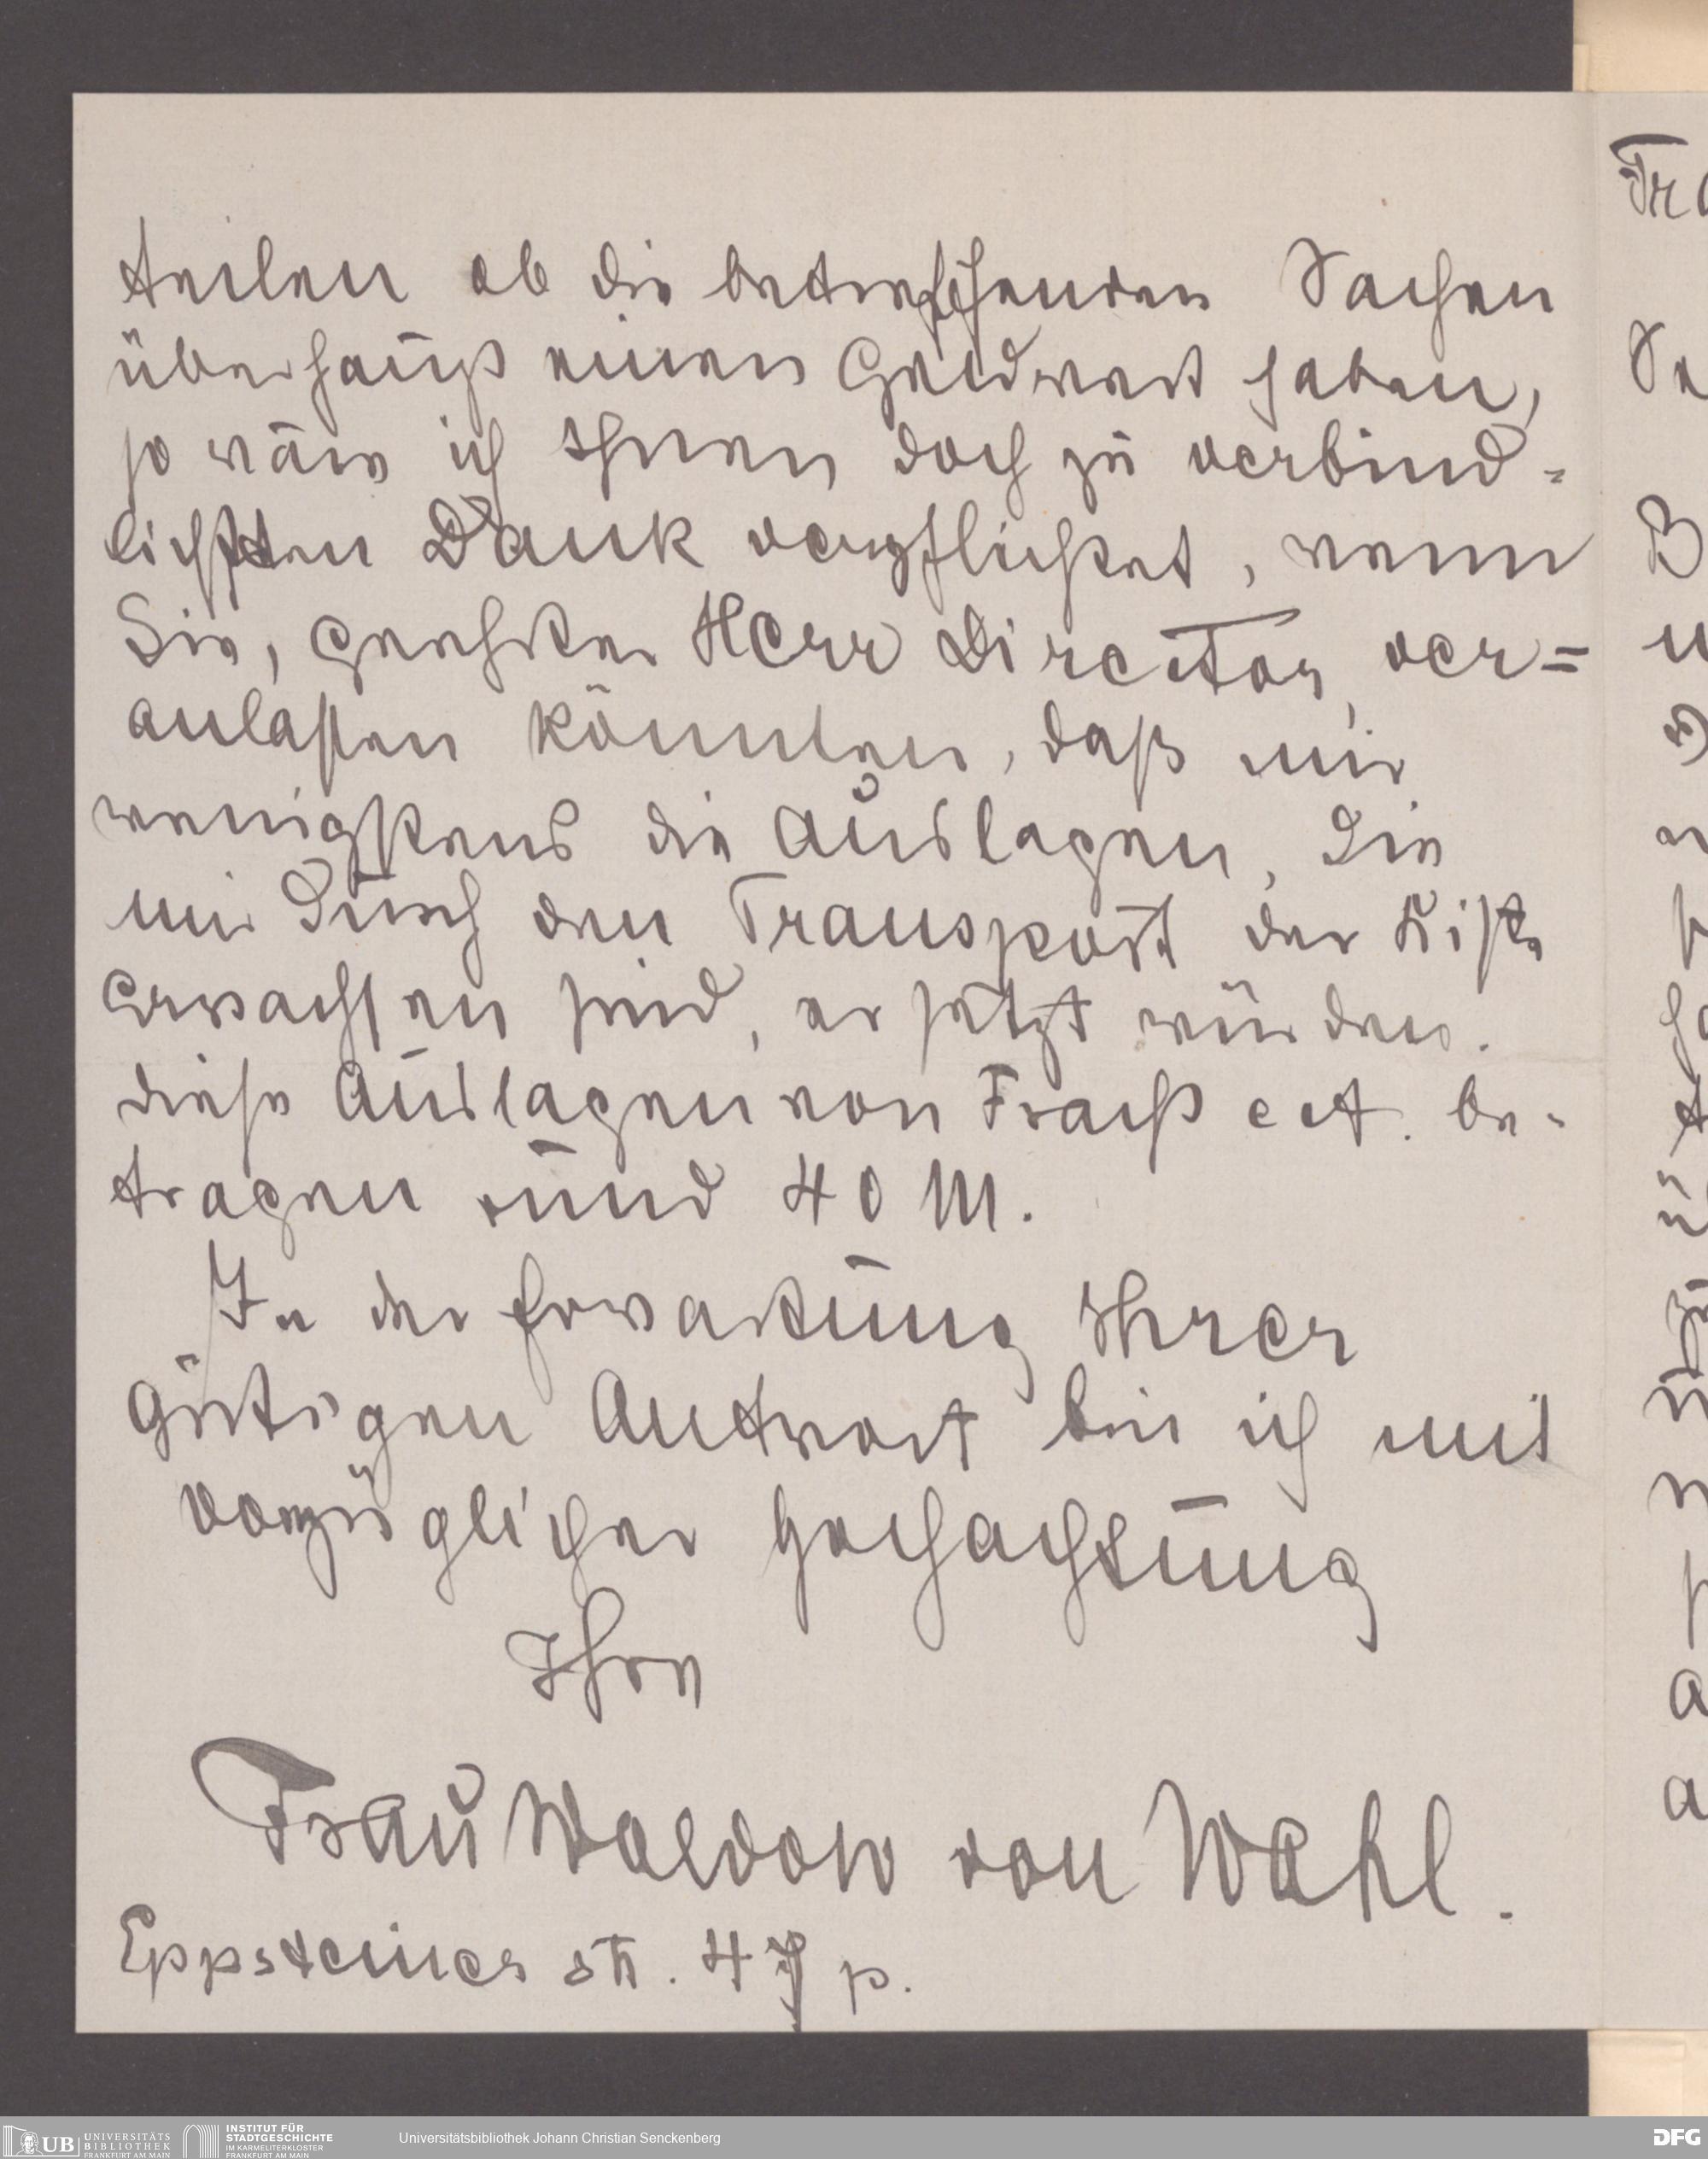 teilen ob die betreffenden Sachen
überhaupt einen Geldwert haben,
so wäre ich Ihnen doch zu verbind=
lichsten Dank verpflichtet, wenn
Sie, geehrter Herr Director, ver=
anlassen könnten, daß mir
wenigstens die Auslagen, die
mir durch den Transport der Kiste
erwachsen sind, ersetzt würden.
diese Auslagen von Fracht ect. be-
tragen rund 40 M.
In der Erwartung Ihrer
gütigen Antwort bin ich mit
vorzüglicher Hochachtung
Ihre
Frau Woldow von Wahl.
Eppsteiner str. 47 p.
UB UNIVERSITÄTS BIBLIOTHEK FRANKFURT AM MAIN
INSTITUT FÜR STADTGESCHICHTE IM KARMELITERKLOSTER FRANKFURT AM MAIN
Universitätsbibliothek Johann Christian Senckenberg
DFG